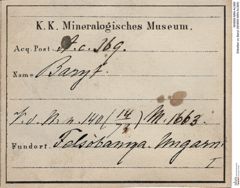 K. K. Mineralogisches Museum.
Acq. Post. A. c. 369.
Name: Baryt.
V. d. N. n. 140 (14/7) M. 1663.
Fundort. Felsöbanya. Ungarn
I